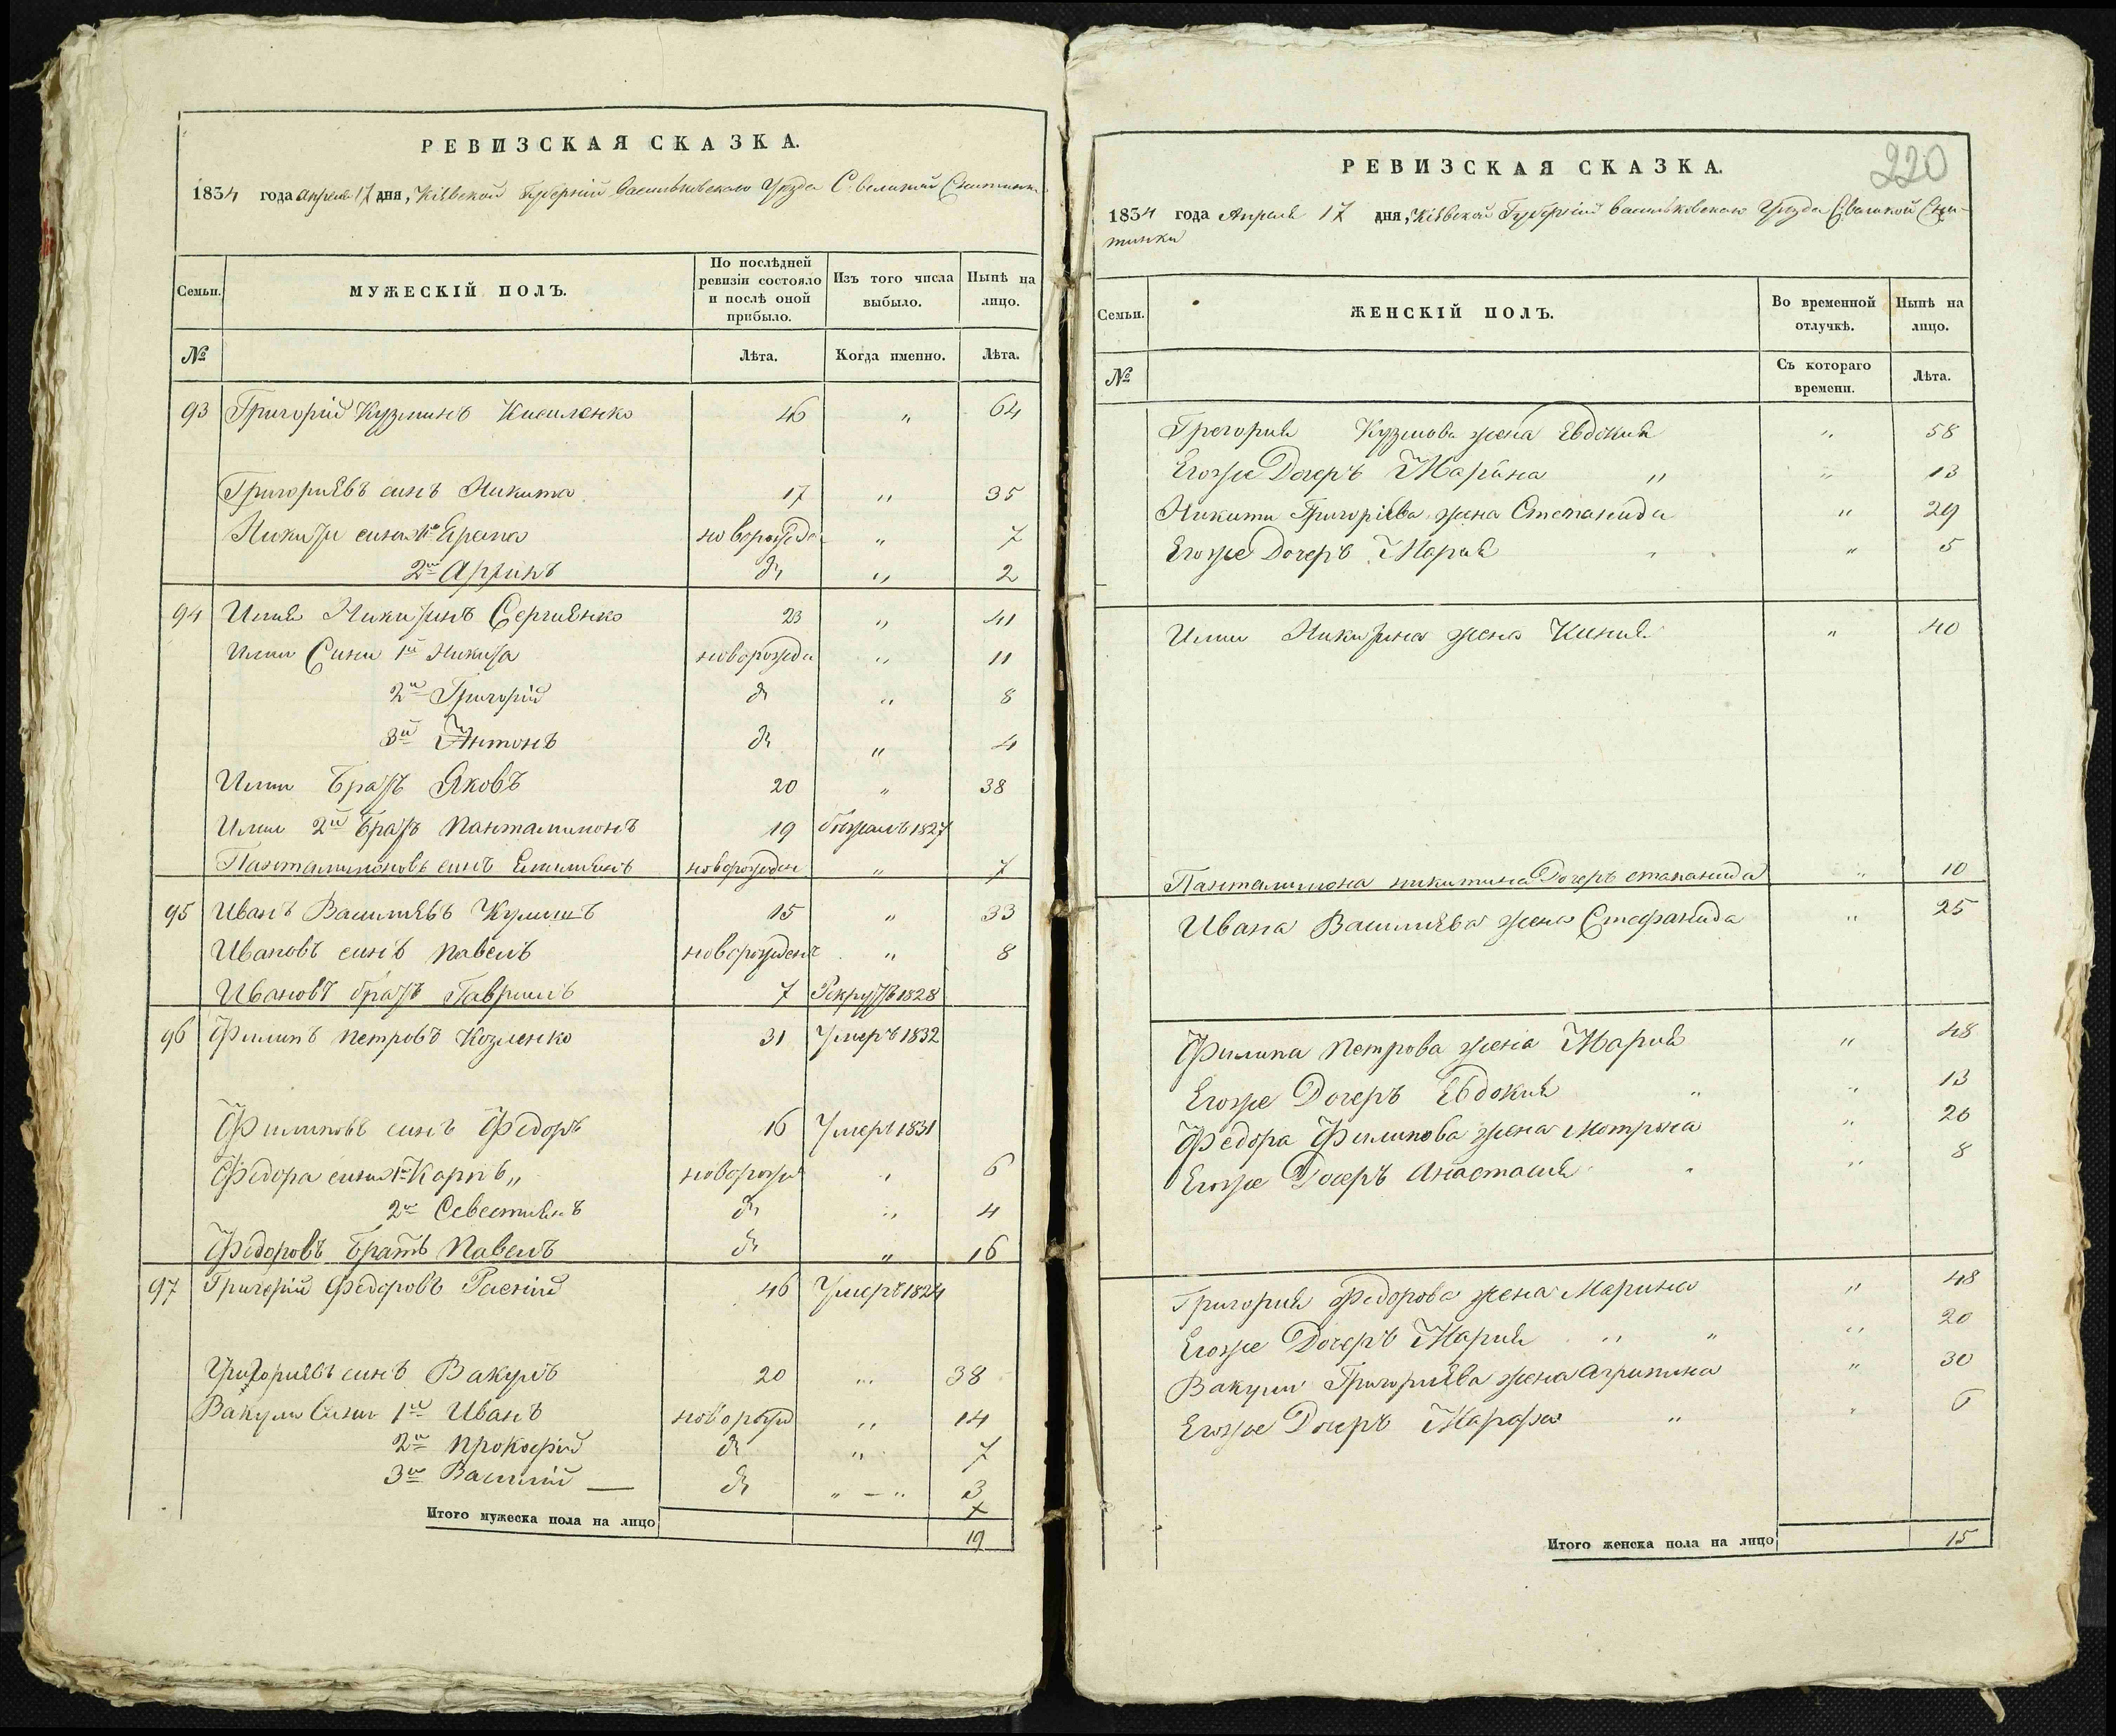 РЕВИЗСКАЯ СКАЗКА.
1834 года Апреля 17 дня, Кіѣвской Губерніи Васильковскаго Уѣзда С.
Семьи.
МУЖЕСКІЙ ПОЛЪ.
По послѣдней ревизіи состояло и послѣ оной прибыло.
Изъ того числа выбыло.
Нынѣ на лицо.
№
Лѣта.
Когда именно.
Лѣта.
93 Григорій Кузминъ Кисиленко 46 " 64
Григориѣвъ синъ Никита 17 " 35
Никиты сини 1й новорожде " 7
2й д. " 2
94 Илия Никитинъ Сергиѣнко 23 " 41
Илии Сини 1й Никита новорожде " 11
2й Григорій д. " 8
3й Антонъ д. " 4
Илии Братъ Яковъ 20 " 38
Илии 2й Братъ Панталимонъ 19 1827
Панталимоновъ синъ новорожден " 7
95 Иванъ Василиѣвъ 15 " 33
Ивановъ синъ Павелъ новорожден " 8
Ивановъ братъ Гаврилъ 7 Рекрутъ 1828
96 Филипъ Петровъ Козленко 31 Умеръ 1832
Филиповъ синъ Федоръ 16 Умеръ 1831
Федора сини 1й Карпъ " новорожд " 6
2й д. " 4
Федоровъ Братъ Павелъ д. " 16
97 Григорій Федоровъ 46 Умеръ 1824
Григориѣвъ синъ Вакулъ 20 " 38
Вакули Сини 1й Иванъ новорожд " 14
2й Прокофій д. " 7
3й Василій — д. " — " 3
Итого мужеска пола на лицо
19
220
РЕВИЗСКАЯ СКАЗКА.
1834 года Апреля 17 дня, Кіѣвской Губерніи Васильковскаго Уѣзда
Семьи.
ЖЕНСКІЙ ПОЛЪ.
Во временной отлучкѣ.
Нынѣ на лицо.
№
Съ котораго времени.
Лѣта.
Кузмова жена Евдокия " 58
Егоже Дочеръ Марина " " 13
Никити Григоріева жена Степанида " 29
Егоже Дочеръ Мария " 5
Илии Никитина жена " 40
Панталимона никитина Дочеръ степанида " 10
Ивана Василиѣва жена Стефанида " 25
Филипа Петрова жена Мария " 48
Егоже Дочеръ Евдокия " " 13
Федора Филипова жена Мотрона " 26
Егоже Дочеръ Анастасия " 8
Григория Федорова жена Марина " 48
Егоже Дочеръ Мария " " " 20
Вакули Григориѣва жена Агрипина " 30
Егоже Дочеръ Марфа " " 6
Итого женска пола на лицо
15